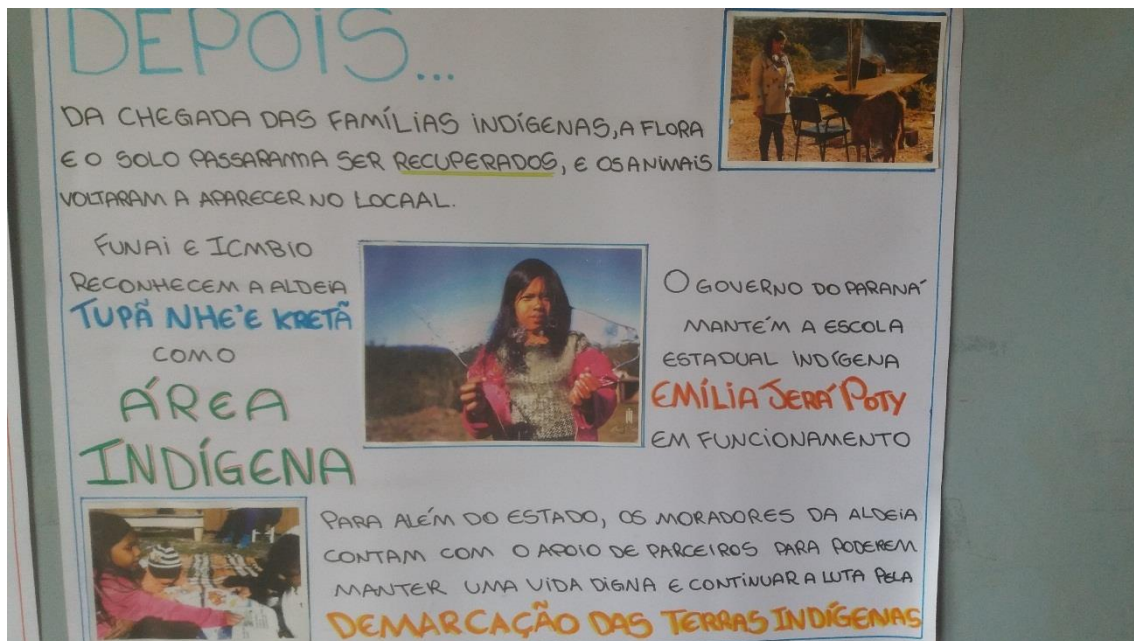 DEPOIS...
DA CHEGADA DAS FAMÍLIAS INDÍGENAS, A FLORA
E O SOLO PASSARAM A SER RECUPERADOS, E OS ANIMAIS
VOLTARAM A APARECER NO LOCAAL.
FUNAI E ICMBIO
RECONHECEM A ALDEIA
TUPÃ NHE'E KRETÃ
COMO
ÁREA
INDÍGENA
O GOVERNO DO PARANÁ
MANTÉM A ESCOLA
ESTADUAL INDÍGENA
EMÍLIA JERÁ POTY
EM FUNCIONAMENTO
PARA ALÉM DO ESTADO, OS MORADORES DA ALDEIA
CONTAM COM O APOIO DE PARCEIROS PARA PODEREM
MANTER UMA VIDA DIGNA E CONTINUAR A LUTA PELA
DEMARCAÇÃO DAS TERRAS INDÍGENAS